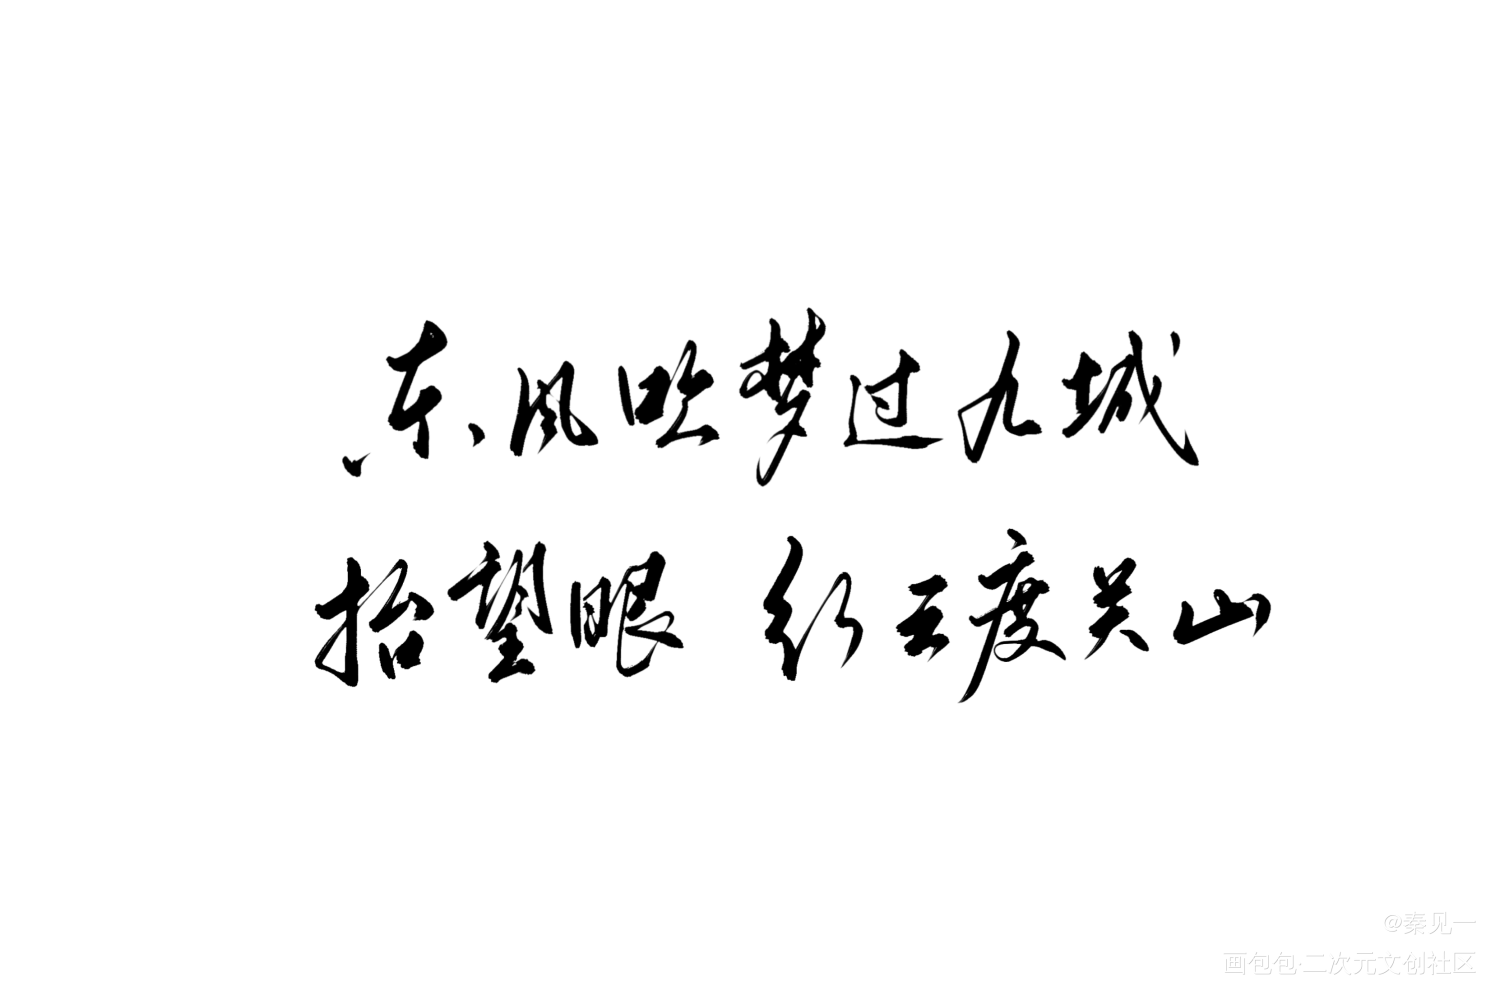 东风吹梦过九城
抬望眼 红云度关山
@秦见一
画包包·二次元文创社区